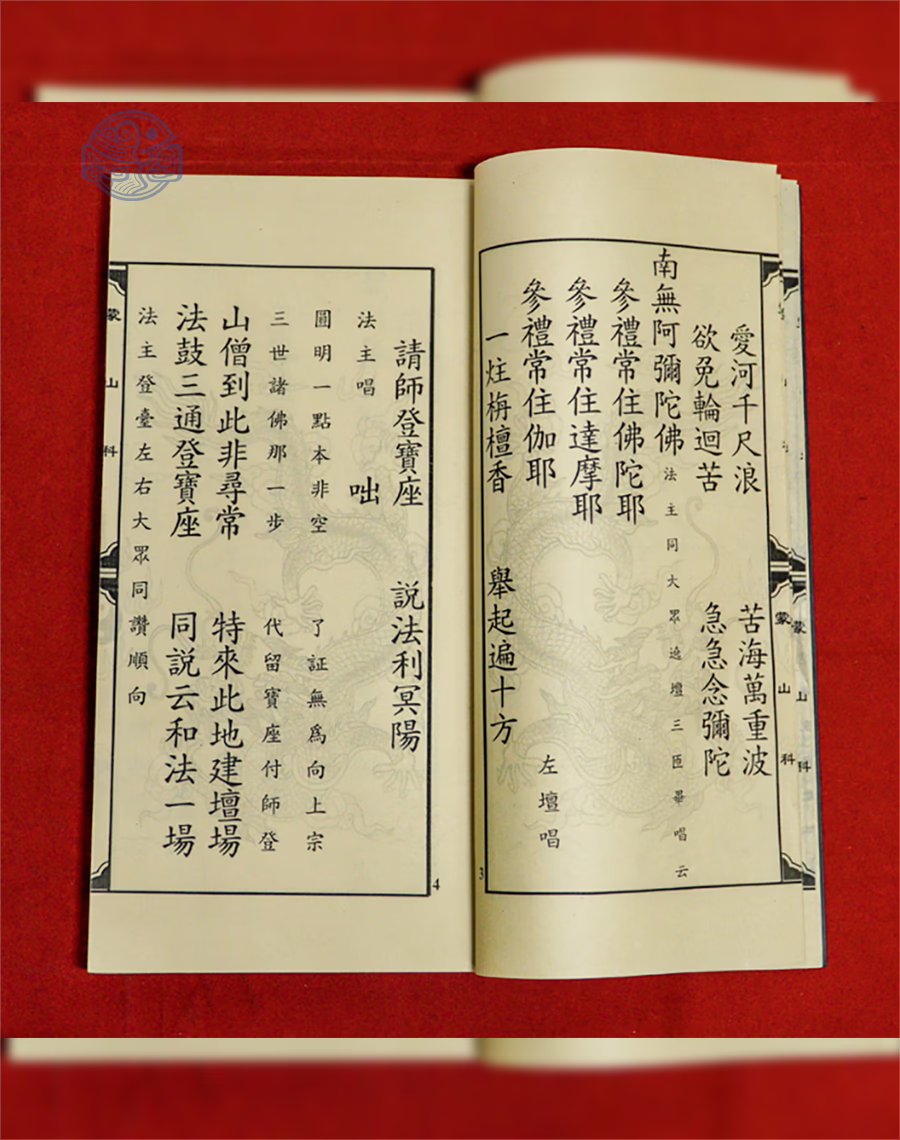 愛河千尺浪 苦海萬重波
欲免輪迴苦 急急念彌陀
南無阿彌陀佛 法主同大眾遶壇三匝畢唱云
參禮常住佛陀耶
參禮常住達摩耶
參禮常住伽耶
一炷栴檀香 舉起遍十方 左壇唱
3
請師登寶座 説法利冥陽
法主唱 咄
圓明一點本非空 了証無爲向上宗
三世諸佛那一步 代留寶座付師登
山僧到此非尋常 特來此地建壇場
法鼓三通登寶座 同説云和法一場
法主登臺左右大眾同讚順向
4
蒙山科
蒙山科
蒙山科